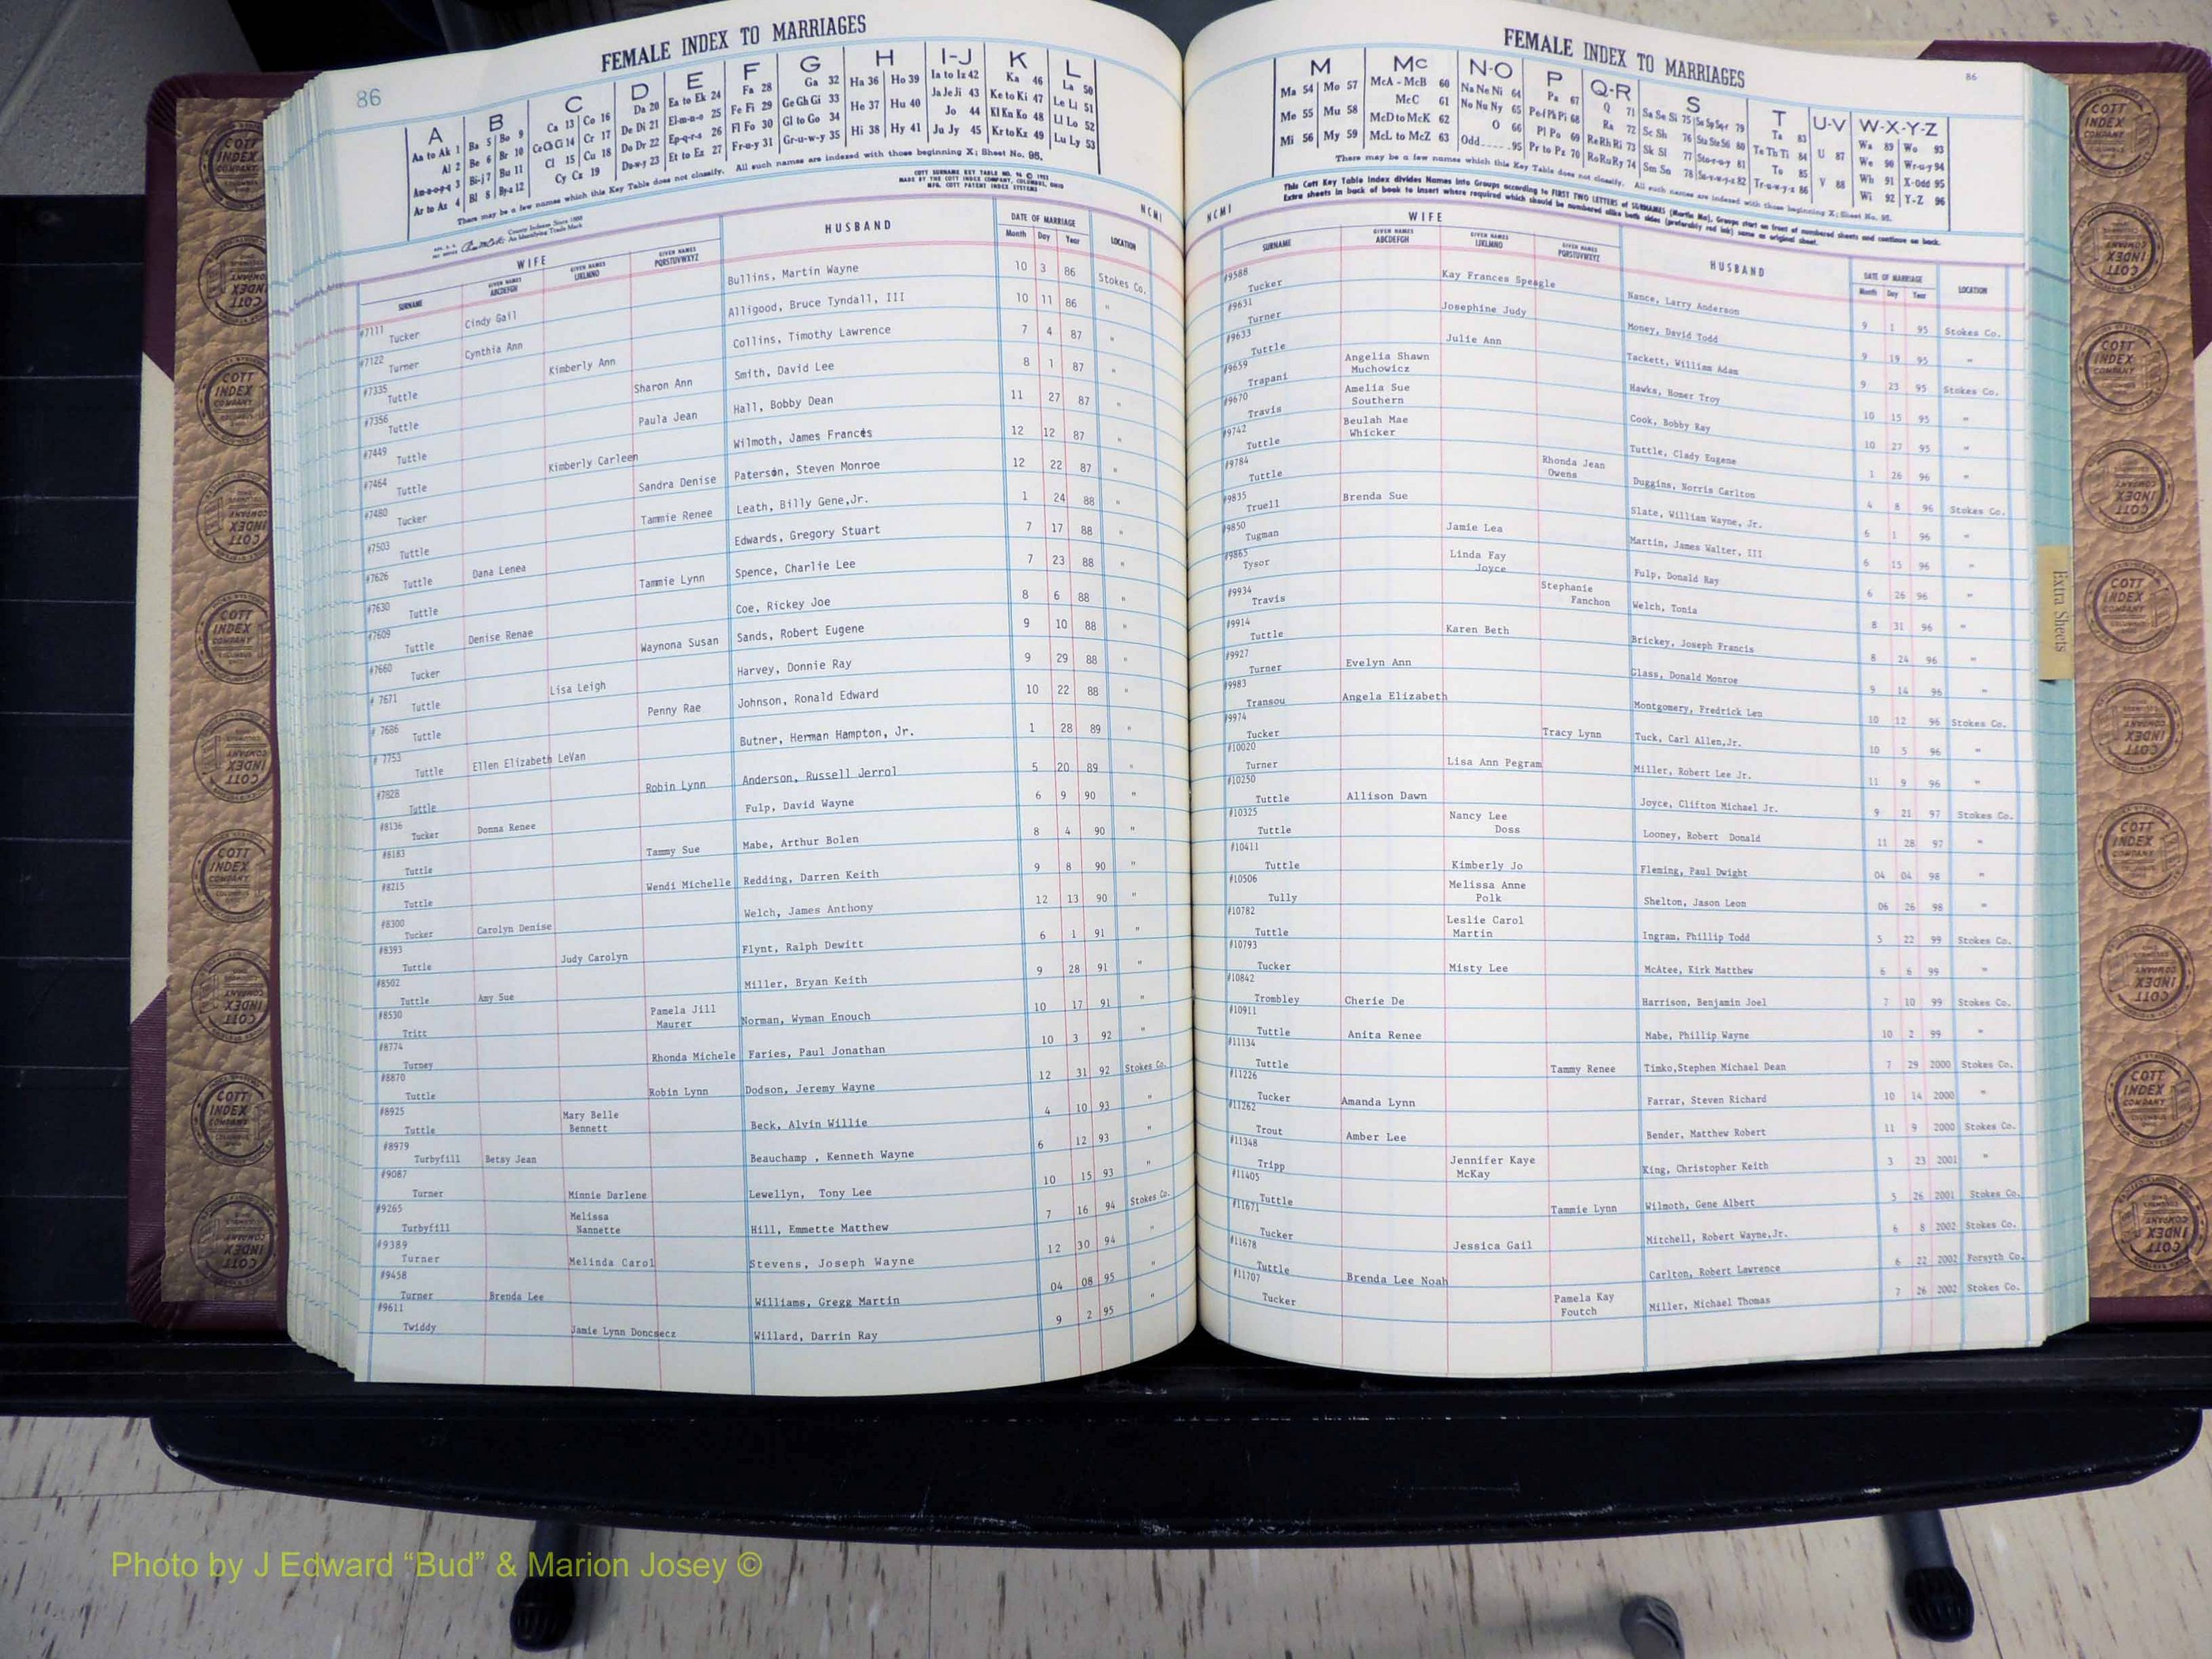 FEMALE INDEX TO MARRIAGES
86
A B C D E F G H I-J K L
Aa to Ak 1 Ba 5 Bo 9 Ca 13 Co 16 Da 20 Ea to Ek 24 Fa 28 Ga 32 Ha 36 Ho 39 Ia to Iz 42 Ka 46 La 50
Al 2 Be 6 Br 10 Ce Ch Ci 14 Cr 17 De Di 21 El-m-n-o 25 Fe Fi 29 Ge Gh Gi 33 He 37 Hu 40 Ja Je Ji 43 Ke to Ki 47 Le Li 51
Am-n-o-p-q 3 Bi-j 7 Bu 11 Cl 15 Cu 18 Do Dr 22 Ep-q-r-s 26 Fl Fo 30 Gl to Go 34 Hi 38 Hy 41 Jo 44 Kl Kn Ko 48 Ll Lo 52
Ar to Az 4 Bl 8 By-z 12 Cy Cz 19 Du-w-y 23 Et to Ez 27 Fr-u-y 31 Gr-u-w-y 35 Ju Jy 45 Kr to Kz 49 Lu Ly 53
There may be a few names which this Key Table does not classify. All such names are indexed with those beginning X; Sheet No. 95.
County Indexes Since 1888
An Identifying Trade Mark
MADE BY THE COTT INDEX COMPANY, COLUMBUS, OHIO
MFG. COTT PATENT INDEX SYSTEMS
NCMI
WIFE HUSBAND DATE OF MARRIAGE LOCATION
SURNAME GIVEN NAMES ABCDEFGH GIVEN NAMES IJKLMNO GIVEN NAMES PQRSTUVWXYZ Month Day Year
#7111 Tucker Cindy Gail Bullins, Martin Wayne 10 3 86 Stokes Co.
#7122 Turner Cynthia Ann Alligood, Bruce Tyndall, III 10 11 86 "
#7335 Tuttle Kimberly Ann Collins, Timothy Lawrence 7 4 87 "
#7356 Tuttle Sharon Ann Smith, David Lee 8 1 87 "
#7449 Tuttle Paula Jean Hall, Bobby Dean 11 27 87 "
#7464 Tuttle Kimberly Carleen Wilmoth, James Francis 12 12 87 "
#7480 Tucker Sandra Denise Paterson, Steven Monroe 12 22 87 "
#7503 Tuttle Tammie Renee Leath, Billy Gene,Jr. 1 24 88 "
#7626 Tuttle Dana Lenea Edwards, Gregory Stuart 7 17 88 "
#7630 Tuttle Tammie Lynn Spence, Charlie Lee 7 23 88 "
#7609 Tuttle Denise Renae Coe, Rickey Joe 8 6 88 "
#7660 Tucker Waynona Susan Sands, Robert Eugene 9 10 88 "
# 7671 Tuttle Lisa Leigh Harvey, Donnie Ray 9 29 88 "
# 7686 Tuttle Penny Rae Johnson, Ronald Edward 10 22 88 "
# 7753 Tuttle Ellen Elizabeth LeVan Butner, Herman Hampton, Jr. 1 28 89 "
#7828 Tuttle Robin Lynn Anderson, Russell Jerrol 5 20 89 "
#8136 Tucker Donna Renee Fulp, David Wayne 6 9 90 "
#8183 Tuttle Tammy Sue Mabe, Arthur Bolen 8 4 90 "
#8215 Tuttle Wendi Michelle Redding, Darren Keith 9 8 90 "
#8300 Tucker Carolyn Denise Welch, James Anthony 12 13 90 "
#8393 Tuttle Judy Carolyn Flynt, Ralph Dewitt 6 1 91 "
#8502 Tuttle Amy Sue Miller, Bryan Keith 9 28 91 "
#8530 Tritt Pamela Jill Maurer Norman, Wyman Enouch 10 17 91 "
#8774 Turney Rhonda Michele Faries, Paul Jonathan 10 3 92 "
#8870 Tuttle Robin Lynn Dodson, Jeremy Wayne 12 31 92 Stokes Co.
#8925 Tuttle Mary Belle Bennett Beck, Alvin Willie 4 10 93 "
#8979 Turbyfill Betsy Jean Beauchamp , Kenneth Wayne 6 12 93 "
#9087 Turner Minnie Darlene Lewellyn, Tony Lee 10 15 93 "
#9265 Turbyfill Melissa Nannette Hill, Emmette Matthew 7 16 94 Stokes Co.
#9389 Turner Melinda Carol Stevens, Joseph Wayne 12 30 94 "
#9458 Turner Brenda Lee Williams, Gregg Martin 04 08 95 "
#9611 Twiddy Jamie Lynn Doncsecz Willard, Darrin Ray 9 2 95 "
FEMALE INDEX TO MARRIAGES
86
M Mc N-O P Q-R S T U-V W-X-Y-Z
Ma 54 Mo 57 McA - McB 60 Na Ne Ni 64 Pa 67 Q 71 Sa Se Si 75 Ta 83 U 87 Wa 89 Wo 93
Me 55 Mu 58 McC 61 No Nu Ny 65 Pe Pf Ph Pi 68 Ra 72 Sc Sh 76 Te Th Ti 84 V 88 We 90 Wr-u-y 94
Mi 56 My 59 McD to McK 62 O 66 Pl Po 69 Re Rh Ri 73 Sk Sl 77 Sto-r-u-y 81 To 85 Wh 91 X-Odd 95
McL to McZ 63 Odd.....95 Pr to Pz 70 Ro Ru Ry 74 Sm Sn 78 Tr-u-w-y-z 86 Wi 92 Y-Z 96
There may be a few names which this Key Table does not classify. All such names are indexed with those beginning X; Sheet No. 95.
This Cott Key Table Index divides Names into Groups according to FIRST TWO LETTERS of SURNAMES (Martin Ma), Groups start on front of numbered sheets and continue on back.
Extra sheets in back of book to insert where required which should be numbered alike both sides (preferably red ink) same as original sheet.
NCMI
WIFE HUSBAND DATE OF MARRIAGE LOCATION
SURNAME GIVEN NAMES ABCDEFGH GIVEN NAMES IJKLMNO GIVEN NAMES PQRSTUVWXYZ Month Day Year
#9588 Tucker Kay Frances Speagle Nance, Larry Anderson 9 1 95 Stokes Co.
#9631 Turner Josephine Judy Money, David Todd 9 19 95 "
#9633 Tuttle Julie Ann Tackett, William Adam 9 23 95 Stokes Co.
#9659 Trapani Angelia Shawn Muchowicz Hawks, Homer Troy 10 15 95 "
#9670 Travis Amelia Sue Southern Cook, Bobby Ray 10 27 95 "
#9742 Tuttle Beulah Mae Whicker Tuttle, Clady Eugene 1 26 96 "
#9784 Tuttle Rhonda Jean Owens Duggins, Norris Carlton 4 8 96 Stokes Co.
#9835 Truell Brenda Sue Slate, William Wayne, Jr. 6 1 96 "
#9850 Tugman Jamie Lea Martin, James Walter, III 6 15 96 "
#9865 Tysor Linda Fay Joyce Fulp, Donald Ray 6 26 96 "
#9934 Travis Stephanie Fanchon Welch, Tonia 8 31 96 "
#9914 Tuttle Karen Beth Brickey, Joseph Francis 8 24 96 "
#9927 Turner Evelyn Ann Glass, Donald Monroe 9 14 96 "
#9983 Transou Angela Elizabeth Montgomery, Fredrick Len 10 12 96 Stokes Co.
#9974 Tucker Tracy Lynn Tuck, Carl Allen,Jr. 10 5 96 "
#10020 Turner Lisa Ann Pegram Miller, Robert Lee Jr. 11 9 96 "
#10250 Tuttle Allison Dawn Joyce, Clifton Michael Jr. 9 21 97 Stokes Co.
#10325 Tuttle Nancy Lee Doss Looney, Robert Donald 11 28 97 "
#10411 Tuttle Kimberly Jo Fleming, Paul Dwight 04 04 98 "
#10506 Tully Melissa Anne Polk Shelton, Jason Leon 06 26 98 "
#10782 Tuttle Leslie Carol Martin Ingram, Phillip Todd 5 22 99 Stokes Co.
#10793 Tucker Misty Lee McAtee, Kirk Matthew 6 6 99 "
#10842 Trombley Cherie De Harrison, Benjamin Joel 7 10 99 Stokes Co.
#10911 Tuttle Anita Renee Mabe, Phillip Wayne 10 2 99 "
#11134 Tuttle Tammy Renee Timko,Stephen Michael Dean 7 29 2000 Stokes Co.
#11226 Tucker Amanda Lynn Farrar, Steven Richard 10 14 2000 "
#11262 Trout Amber Lee Bender, Matthew Robert 11 9 2000 Stokes Co.
#11348 Tripp Jennifer Kaye McKay King, Christopher Keith 3 23 2001 "
#11405 Tuttle Tammie Lynn Wilmoth, Gene Albert 5 26 2001 Stokes Co.
#11671 Tucker Jessica Gail Mitchell, Robert Wayne,Jr. 6 8 2002 Stokes Co.
#11678 Tuttle Brenda Lee Noah Carlton, Robert Lawrence 6 22 2002 Forsyth Co.
#11707 Tucker Pamela Kay Foutch Miller, Michael Thomas 7 26 2002 Stokes Co.
Extra Sheets
COTT INDEX COMPANY
Photo by J Edward “Bud” & Marion Josey ©